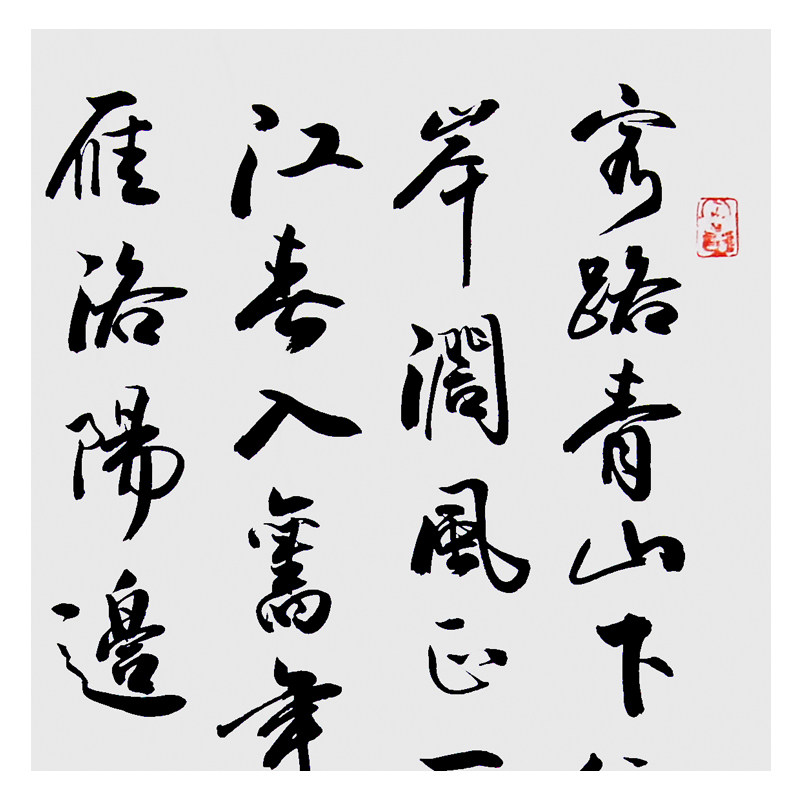 客路青山下
岸闊風正一
江春入舊年
雁洛陽邊